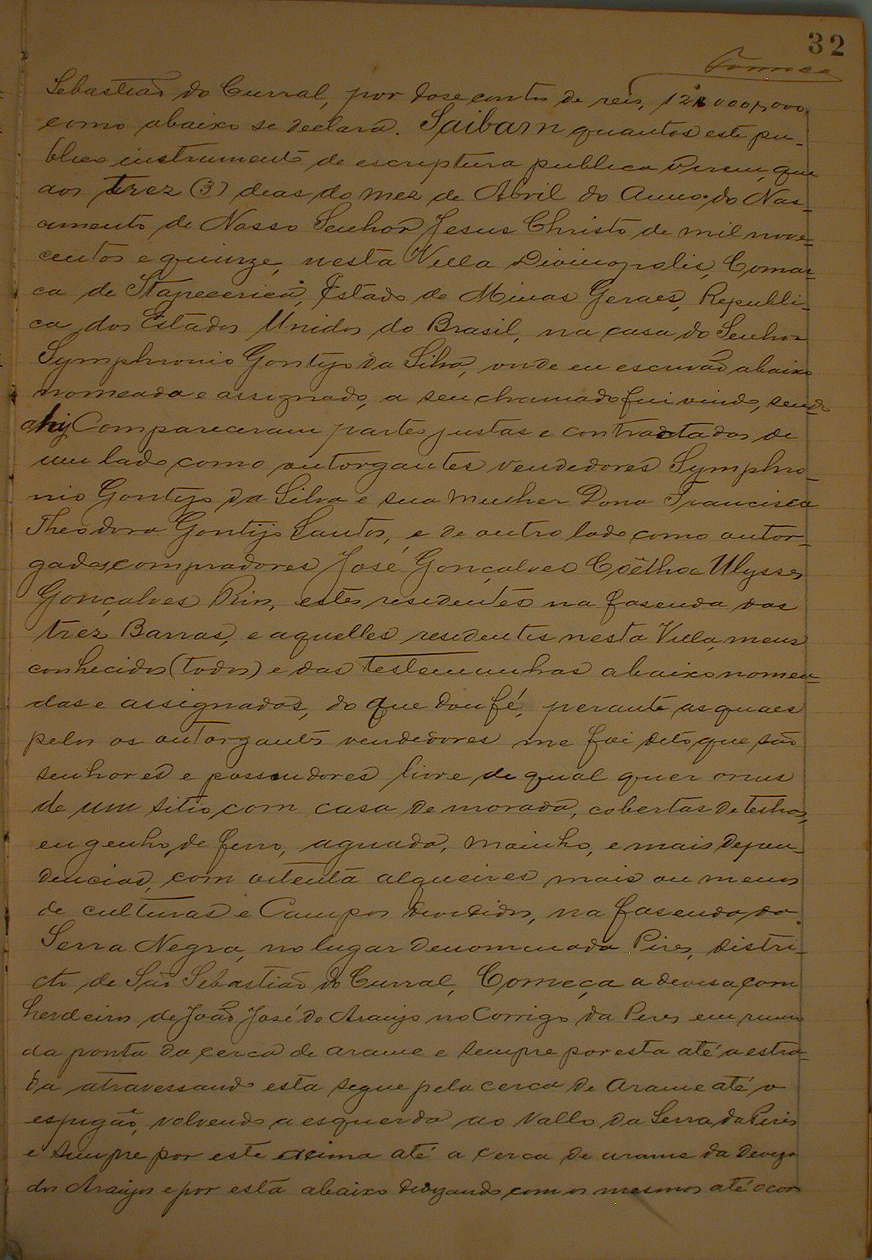 32
Sebastião do Curral, por dose contos de reis, 12:000$000,
como abaixo se declara. Saibam quantos este pu-
blico instrumento de escriptura publica virem, que
aos trez (3) dias do mez de Abril do Anno do Nas-
cimento de Nosso Senhor Jesus Christo de mil nove-
centos e quinze, nesta Villa Divinopolis, Comar-
ca de Itapecerica, Estado de Minas Geraes, Republi-
ca dos Estados Unidos do Brasil, na casa do Senhor
Symphronio Gontijo da Silva, onde eu escrivão abaixo
nomeado e assignado, a seu chamado fui vindo, sendo
ahi, Compareceram partes justas e contractadas de
um lado como outorgantes vendedores Sympho-
nio Gontijo da Silva e sua mulher Dona Francisca
Theodora Gontijo Santos, e de outro lado como outor-
gados compradores José Gonçalves Coêlho e Ulysses
Gonçalves Rios, estes residentes na fasenda das
trez Barras, e aquelles residentes nesta Villa, meus
conhecidos (todos) e das testemunhas abaixo nomea-
das e assignados, do que dou fé, perante as quaes
pelos os outorgantes vendedores me foi dito que são
senhores e possuidores livre de qual quer onus
de um sitio, com casa de morada, cobertas de telhas,
engenho de ferro, aguada, moinho, e mais depen-
dencias, com oitenta alqueires mais ou menos
de culturas e Campos devididos, na fasenda da
Serra Negra, no lugar denominado Pires, distri-
cto de São Sebastião do Curral, Começa a devisa com
herdeiros de João José de Araujo no Corrigo da Pires em rumo
da ponta da cerca de arame e sempre por esta até a estra-
da atravessando esta segue pela cerca de Arame até o
espigão, volvendo a esquerda ao Vallo da Serra da Pires
e sempre por este acima até a cerca de arame da deviza
dos Araujos e por esta abaixo devizando com os mesmos até o cor